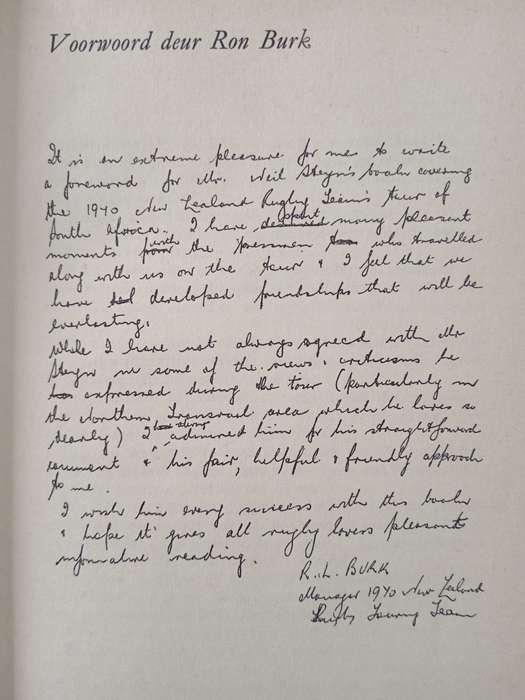 Voorwoord deur Ron Burk
It is an extreme pleasure for me to write
a foreword for Mr. Neil Steyn's book covering
the 1970 New Zealand Rugby Team's tour of
South Africa. I have spent many pleasant
moments with the Pressmen who travelled
along with us on the tour & I feel that we
have developed friendships that will be
everlasting.
While I have not always agreed with Mr
Steyn in some of the views & criticisms he
has expressed during the tour (particularly in
the Northern Transvaal area which he loves so
dearly) I have always admired him for his straightforward
comment & his fair, helpful & friendly approach
to me.
I wish him every success with this book
& hope it gives all rugby lovers pleasant &
informative reading.
R.L. BURK
Manager 1970 New Zealand
Rugby Touring Team